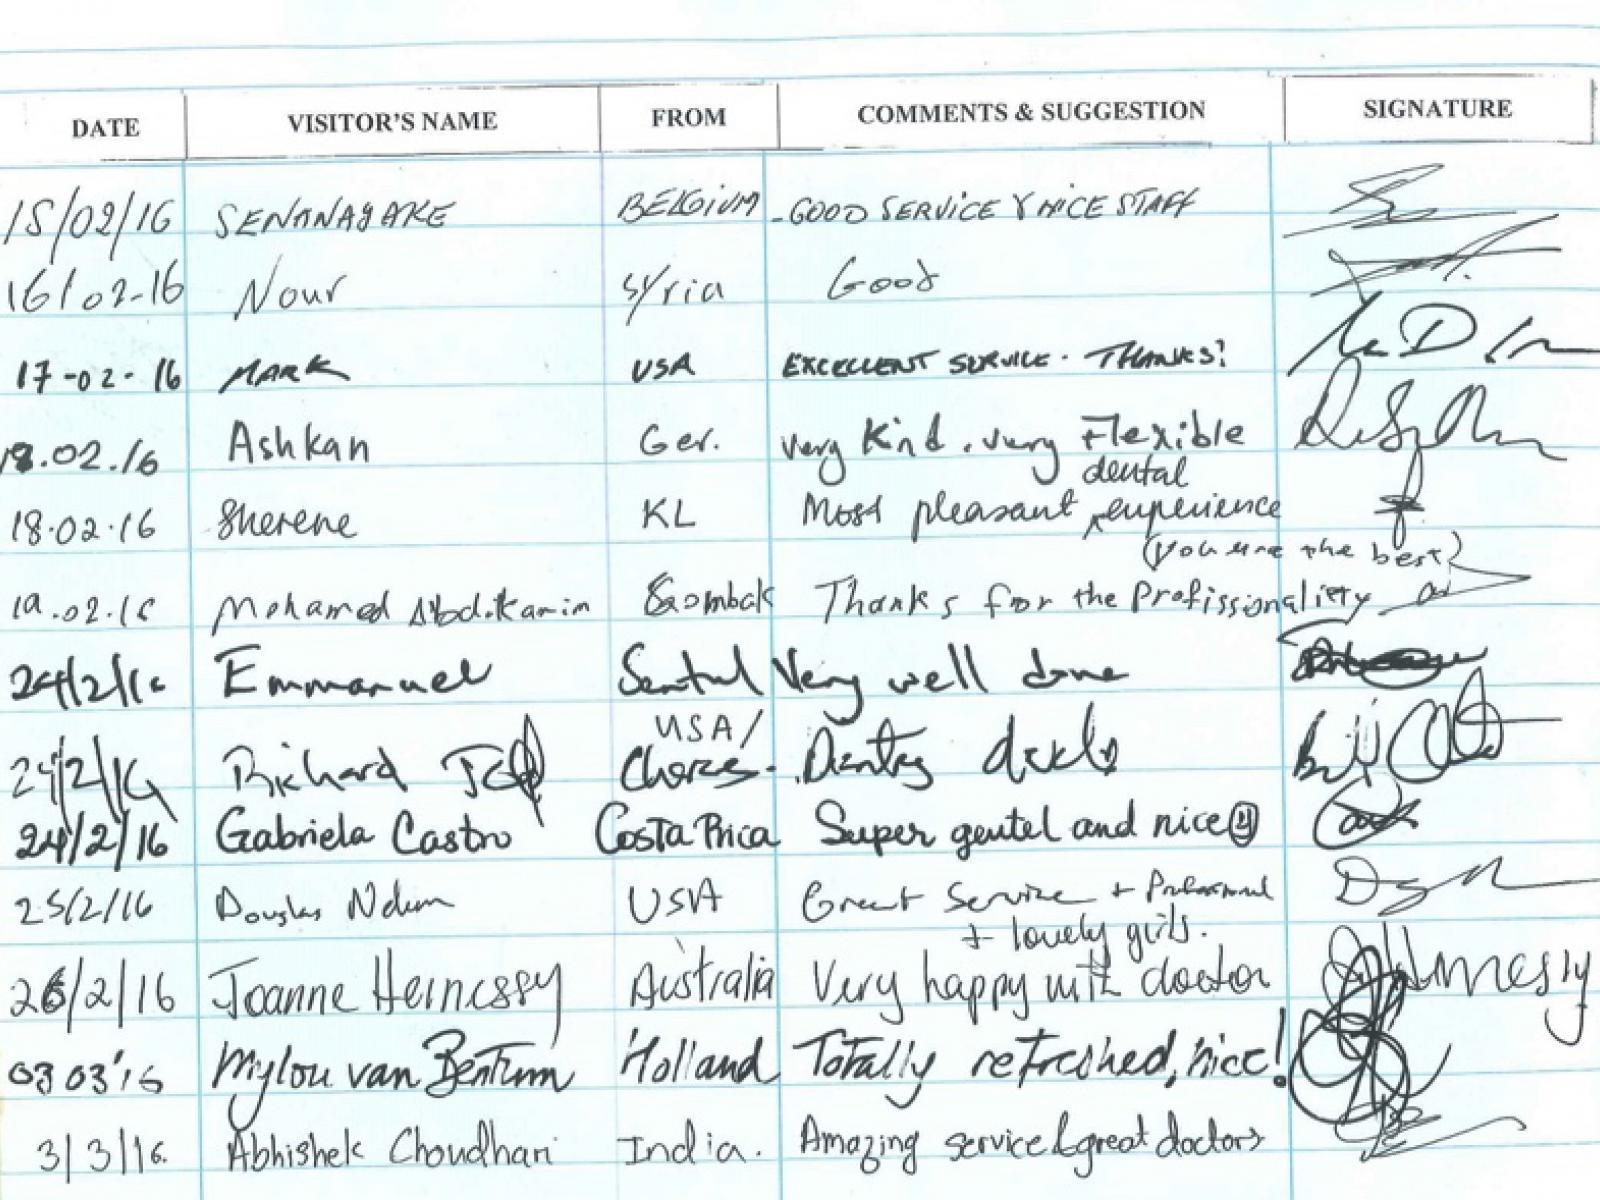 DATE VISITOR'S NAME FROM COMMENTS & SUGGESTION SIGNATURE
15/02/16 SENANAYAKE BELGIUM - GOOD SERVICE Y NICE STAFF
16/02-16 Nour Syria Good
17-02-16 MARK USA EXCELLENT SERVICE. THANKS!
18.02.16 Ashkan Ger. very kind. very Flexible
dental
18.02.16 Sherene KL Most pleasant experience
(you are the best)
19.02.16 Mohamed Abdikarim Gombak Thanks for the Profissionaliety
24/2/16 Emmanuel Sentul Very well done
USA/
24/2/16 Richard
24/2/16 Gabriela Castro Costa Rica Super gentel and nice
25/2/16 Douglas USA Great Service + Professional
+ lovely girls.
26/2/16 Joanne Hennessy Australia Very happy with doctor
03 03'16 Mylou van Bentum Holland Totally refreshed, nice!
3/3/16. Abhishek Choudhari India. Amazing service & great doctors